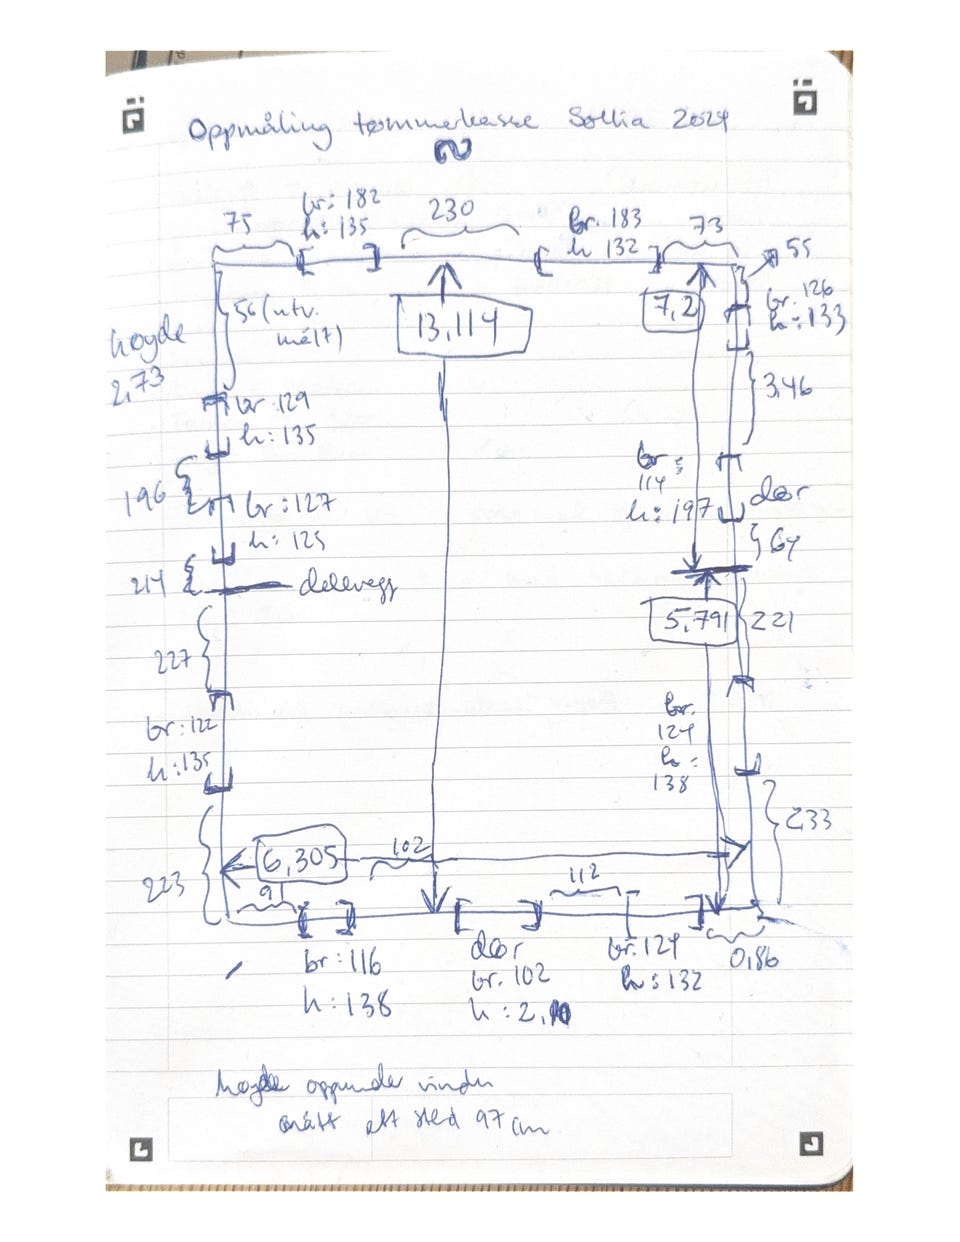 Oppmåling tømmerkasse Sollia 2024
75
br: 182
h: 135
230
br. 183
h 132
73
55
56 (utv.
mål?)
13,114
7,2
br. 126
h: 133
høyde
2,73
br. 129
h: 135
3,46
196
br: 127
h: 125
br:
114
h: 197
dør
64
214
delevegg
5,791
221
227
br: 122
h: 135
br.
124
h:
138
233
223
6,305
102
91
112
br: 116
h: 138
dør
br. 102
h: 2,10
br. 124
h: 132
0,86
høyde oppunder vindu
målt ett sted 97 cm